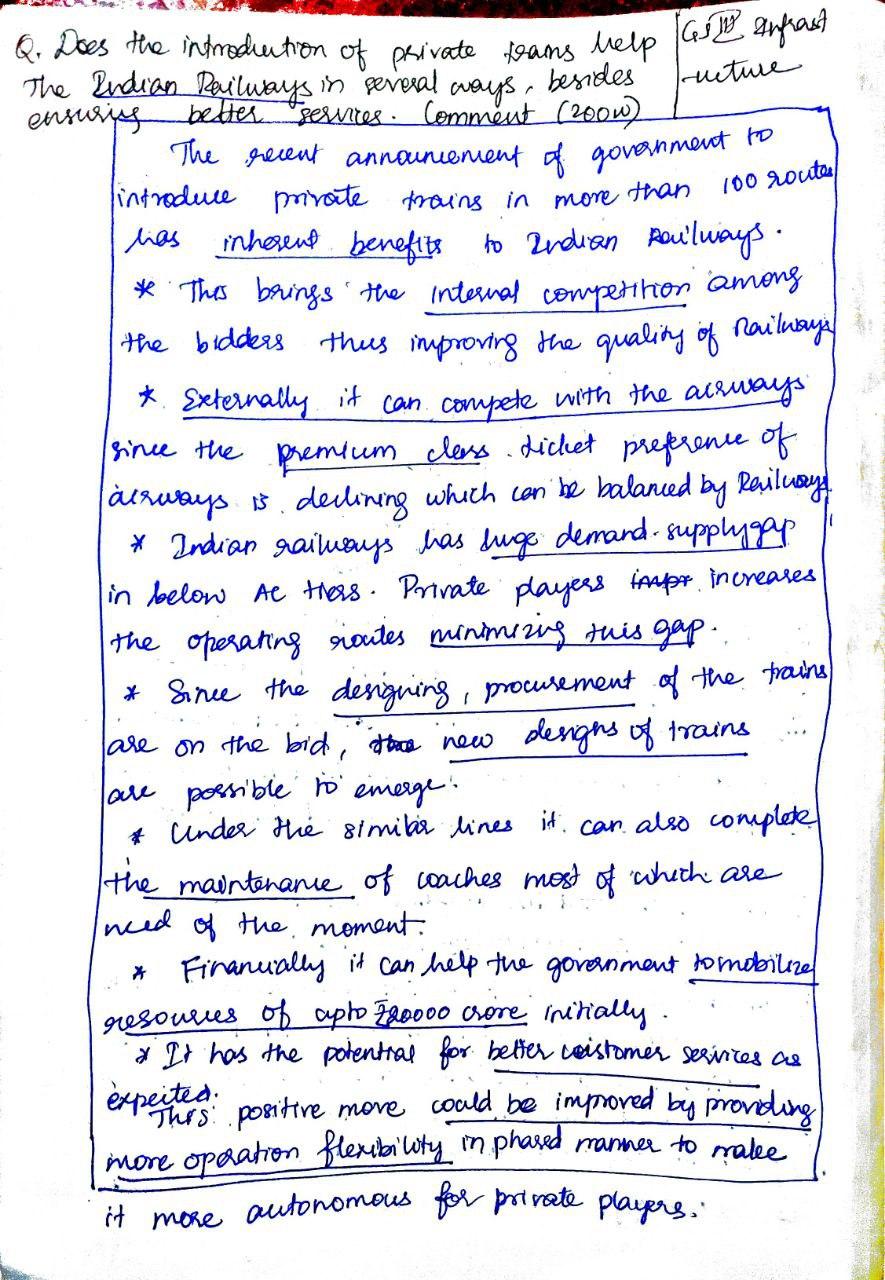 Q. Does the introduction of private trains help
The Indian Railways in several ways, besides
ensuring better services. Comment (200W)
GS III Infrast
-ucture
The recent announcement of government to
introduce private trains in more than 100 routes
has inherent benefits to Indian Railways.
* This brings the internal competition among
the bidders thus improving the quality of Railways
* Externally it can compete with the airways
since the premium class ticket preference of
airways is declining which can be balanced by Railways
* Indian railways has huge demand-supply gap
in below AC tiers. Private players impr increases
the operating routes minimizing this gap.
* Since the designing, procurement of the trains
are on the bid, new designs of trains
are possible to emerge.
* Under the similar lines it can also complete
the maintenance of coaches most of which are
need of the moment.
* Financially it can help the government to mobilize
resources of upto ₹20000 crore initially.
* It has the potential for better customer services as
expected.
This positive move could be improved by providing
more operation flexibility in phased manner to make
it more autonomous for private players.